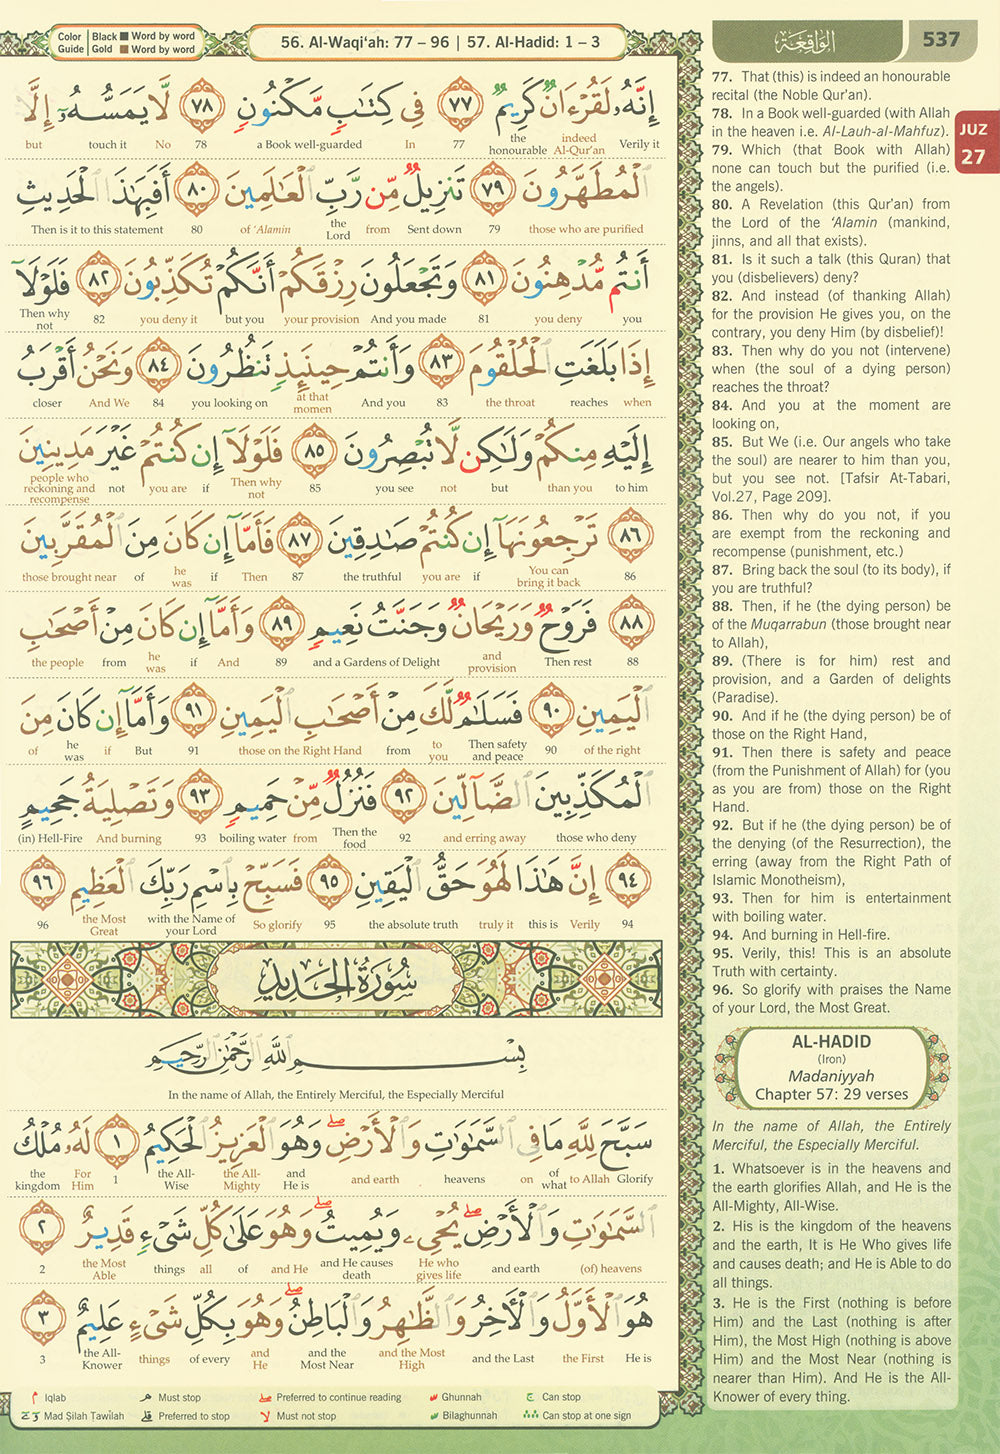 Color Guide | Black ■ Word by word
Gold ■ Word by word
56. Al-Waqi‘ah: 77 – 96 | 57. Al-Hadid: 1 – 3
الواقعة
537
JUZ
27
إِنَّهُۥ لَقُرْءَانٌ كَرِيمٌ ٧٧ فِى كِتَٰبٍ مَّكْنُونٍ ٧٨ لَّا يَمَسُّهُۥٓ إِلَّا
Verily it indeed Al-Qur’an the honourable 77 In a Book well-guarded 78 No touch it but
ٱلْمُطَهَّرُونَ ٧٩ تَنزِيلٌ مِّن رَّبِّ ٱلْعَٰلَمِينَ ٨٠ أَفَبِهَٰذَا ٱلْحَدِيثِ
those who are purified 79 Sent down from the Lord of ‘Alamin 80 Then is it to this statement
أَنتُم مُّدْهِنُونَ ٨١ وَتَجْعَلُونَ رِزْقَكُمْ أَنَّكُمْ تُكَذِّبُونَ ٨٢ فَلَوْلَآ
you you deny 81 And you made your provision but you you deny it 82 Then why not
إِذَا بَلَغَتِ ٱلْحُلْقُومَ ٨٣ وَأَنتُمْ حِينَئِذٍ تَنظُرُونَ ٨٤ وَنَحْنُ أَقْرَبُ
when reaches the throat 83 And you at that momen you looking on 84 And We closer
إِلَيْهِ مِنكُمْ وَلَٰكِن لَّا تُبْصِرُونَ ٨٥ فَلَوْلَآ إِن كُنتُمْ غَيْرَ مَدِينِينَ
to him than you but not you see 85 Then why not if you are not people who reckoning and recompense
٨٦ تَرْجِعُونَهَآ إِن كُنتُمْ صَٰدِقِينَ ٨٧ فَأَمَّآ إِن كَانَ مِنَ ٱلْمُقَرَّبِينَ
86 You can bring it back if you are the truthful 87 Then if he was of those brought near
٨٨ فَرَوْحٌ وَرَيْحَانٌ وَجَنَّتُ نَعِيمٍ ٨٩ وَأَمَّآ إِن كَانَ مِنْ أَصْحَٰبِ
88 Then rest and provision and a Gardens of Delight 89 And if he was from the people
ٱلْيَمِينِ ٩٠ فَسَلَٰمٌ لَّكَ مِنْ أَصْحَٰبِ ٱلْيَمِينِ ٩١ وَأَمَّآ إِن كَانَ مِنَ
of the right 90 Then safety and peace to you from those on the Right Hand 91 But if he was of
ٱلْمُكَذِّبِينَ ٱلضَّآلِّينَ ٩٢ فَنُزُلٌ مِّنْ حَمِيمٍ ٩٣ وَتَصْلِيَةُ جَحِيمٍ
those who deny and erring away 92 Then the food from boiling water 93 And burning (in) Hell-Fire
٩٤ إِنَّ هَٰذَا لَهُوَ حَقُّ ٱلْيَقِينِ ٩٥ فَسَبِّحْ بِٱسْمِ رَبِّكَ ٱلْعَظِيمِ ٩٦
94 Verily this is truly it the absolute truth 95 So glorify with the Name of your Lord the Most Great 96
سُورَةُ الْحَدِيدِ
بِسْمِ ٱللَّهِ ٱلرَّحْمَٰنِ ٱلرَّحِيمِ
In the name of Allah, the Entirely Merciful, the Especially Merciful
سَبَّحَ لِلَّهِ مَا فِى ٱلسَّمَٰوَٰتِ وَٱلْأَرْضِ ۖ وَهُوَ ٱلْعَزِيزُ ٱلْحَكِيمُ ١ لَهُۥ مُلْكُ
Glorify to Allah of what on heavens and earth and He is the All-Mighty the All-Wise 1 For Him the kingdom
ٱلسَّمَٰوَٰتِ وَٱلْأَرْضِ ۖ يُحْىِۦ وَيُمِيتُ ۖ وَهُوَ عَلَىٰ كُلِّ شَىْءٍ قَدِيرٌ ٢
(of) heavens and earth He who gives life and He causes death and He of all things the Most Able 2
هُوَ ٱلْأَوَّلُ وَٱلْءَاخِرُ وَٱلظَّٰهِرُ وَٱلْبَاطِنُ ۖ وَهُوَ بِكُلِّ شَىْءٍ عَلِيمٌ ٣
He is the First and the Last and the Most High and the Most Near and He of every things the All-Knower 3
Iqlab Must stop Preferred to continue reading Ghunnah Can stop
Mad Ṣilah Ṭawilah Preferred to stop Must not stop Bilaghunnah Can stop at one sign
77. That (this) is indeed an honourable
recital (the Noble Qur’an).
78. In a Book well-guarded (with Allah
in the heaven i.e. Al-Lauh-al-Mahfuz).
79. Which (that Book with Allah)
none can touch but the purified (i.e.
the angels).
80. A Revelation (this Qur’an) from
the Lord of the ‘Alamin (mankind,
jinns, and all that exists).
81. Is it such a talk (this Quran) that
you (disbelievers) deny?
82. And instead (of thanking Allah)
for the provision He gives you, on the
contrary, you deny Him (by disbelief)!
83. Then why do you not (intervene)
when (the soul of a dying person)
reaches the throat?
84. And you at the moment are
looking on,
85. But We (i.e. Our angels who take
the soul) are nearer to him than you,
but you see not. [Tafsir At-Tabari,
Vol.27, Page 209].
86. Then why do you not, if you
are exempt from the reckoning and
recompense (punishment, etc.)
87. Bring back the soul (to its body), if
you are truthful?
88. Then, if he (the dying person) be
of the Muqarrabun (those brought near
to Allah),
89. (There is for him) rest and
provision, and a Garden of delights
(Paradise).
90. And if he (the dying person) be of
those on the Right Hand,
91. Then there is safety and peace
(from the Punishment of Allah) for (you
as you are from) those on the Right
Hand.
92. But if he (the dying person) be of
the denying (of the Resurrection), the
erring (away from the Right Path of
Islamic Monotheism),
93. Then for him is entertainment
with boiling water.
94. And burning in Hell-fire.
95. Verily, this! This is an absolute
Truth with certainty.
96. So glorify with praises the Name
of your Lord, the Most Great.
AL-HADID
(Iron)
Madaniyyah
Chapter 57: 29 verses
In the name of Allah, the Entirely
Merciful, the Especially Merciful.
1. Whatsoever is in the heavens and
the earth glorifies Allah, and He is the
All-Mighty, All-Wise.
2. His is the kingdom of the heavens
and the earth, It is He Who gives life
and causes death; and He is Able to do
all things.
3. He is the First (nothing is before
Him) and the Last (nothing is after
Him), the Most High (nothing is above
Him) and the Most Near (nothing is
nearer than Him). And He is the All-
Knower of every thing.